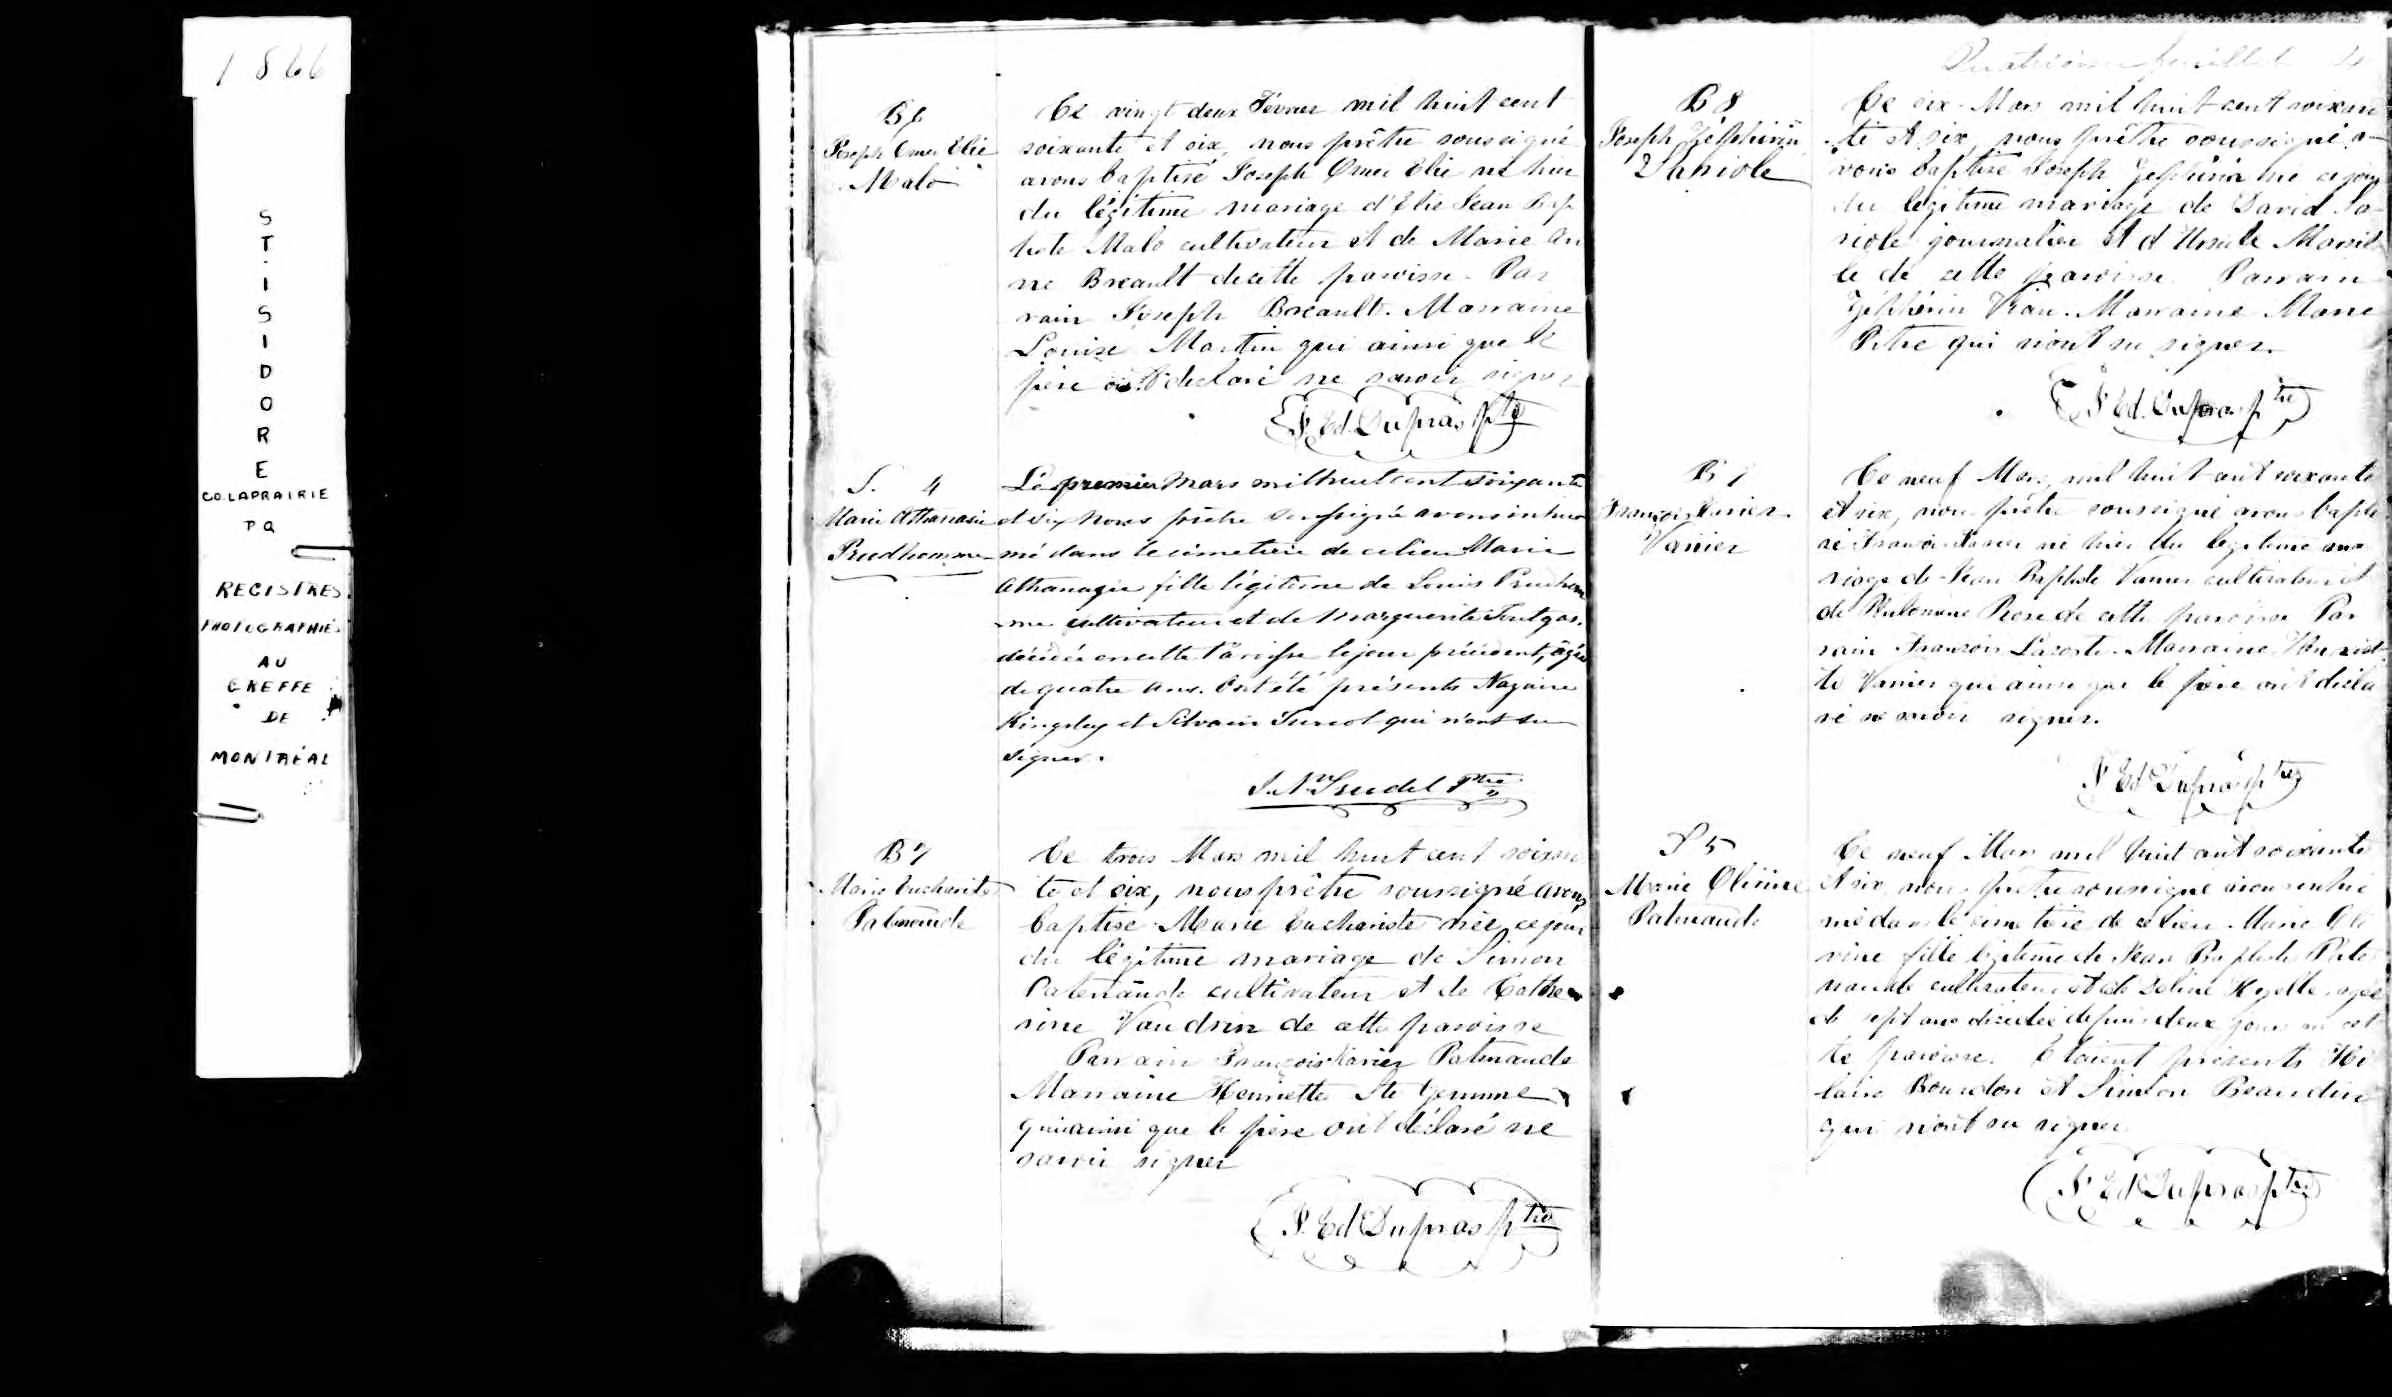 1866
ST. ISIDORE
CO. LAPRAIRIE
P Q
REGISTRES
PHOTOGRAPHIÉS
AU
GREFFE
DE
MONTRÉAL
B 6
Joseph Omer Elie
Malo
Ce vingt deux Février mil huit cent
soixante et six, nous prêtre soussigné
avons baptisé Joseph Omer Elie né hier
du légitime mariage d'Elie Jean Bap
tiste Malo cultivateur et de Marie An
ne Breault de cette paroisse. Par
rain Joseph Breault. Marraine
Louise Martin qui ainsi que le
père ont déclaré ne savoir signer
J. Ed. Dupras ptre
S. 4
Marie Athanasie
Prudhomme
Le premier Mars mil huit cent soixante
et six nous prêtre soussigné avons inhu
mé dans le cimetière de ce lieu Marie
Athanasie fille légitime de Louis Prudhom
me cultivateur et de Marguerite
décédée en cette Paroisse le jour précédent, âgée
de quatre ans. Ont été présents Nazaire
Kingsley et Silvain Turcot qui n'ont su
signer.
Ptre
B 7
Marie Euchariste
Patenaude
Ce trois Mars mil huit cent soixan
te et six, nous prêtre soussigné avons
baptisé Marie Euchariste née ce jour
du légitime mariage de Simon
Patenaude cultivateur et de Cathe
rine Vaudrin de cette paroisse
Parrain François Xavier Patenaude
Marraine Henriette Ste Gemme
qui ainsi que le père ont déclaré ne
savoir signer
J. Ed Dupras ptre
Quatrième feuillet 4
B 8
Joseph Zéphirin
Lariole
Ce six Mars mil huit cent soixan
te et six, nous prêtre soussigné a-
vons baptisé Joseph Zéphirin né ce jour
du légitime mariage de David La-
riole journalier et d'Ursule Marsil
le de cette paroisse. Parrain
Zéphirin Viau. Marraine Marie
qui n'ont su signer.
J. Ed. Dupras ptre
B
François Xavier
Vanier
Ce neuf Mars mil huit cent soixante
et six, nous prêtre soussigné avons bapti
sé François Xavier né hier du légitime ma
riage de Jean Baptiste Vanier cultivateur et
de Philomène de cette paroisse. Par
rain François Lacoste. Marraine Henriet
te Vanier qui ainsi que le père ont décla
ré ne savoir signer.
J. Ed Dupras ptre
S 5
Marie Olivine
Patenaude
Ce neuf Mars mil huit cent soixante
et six, nous prêtre soussigné avons inhu
mé dans le cimetière de ce lieu Marie Oli
vine fille légitime de Jean Baptiste Pate
naude cultivateur et de âgée
de sept ans décédée depuis deux jours en cet
te paroisse. Etaient présents Hi
laire Bourdon et Siméon Beaudin
qui n'ont su signer
J. Ed Dupras ptre